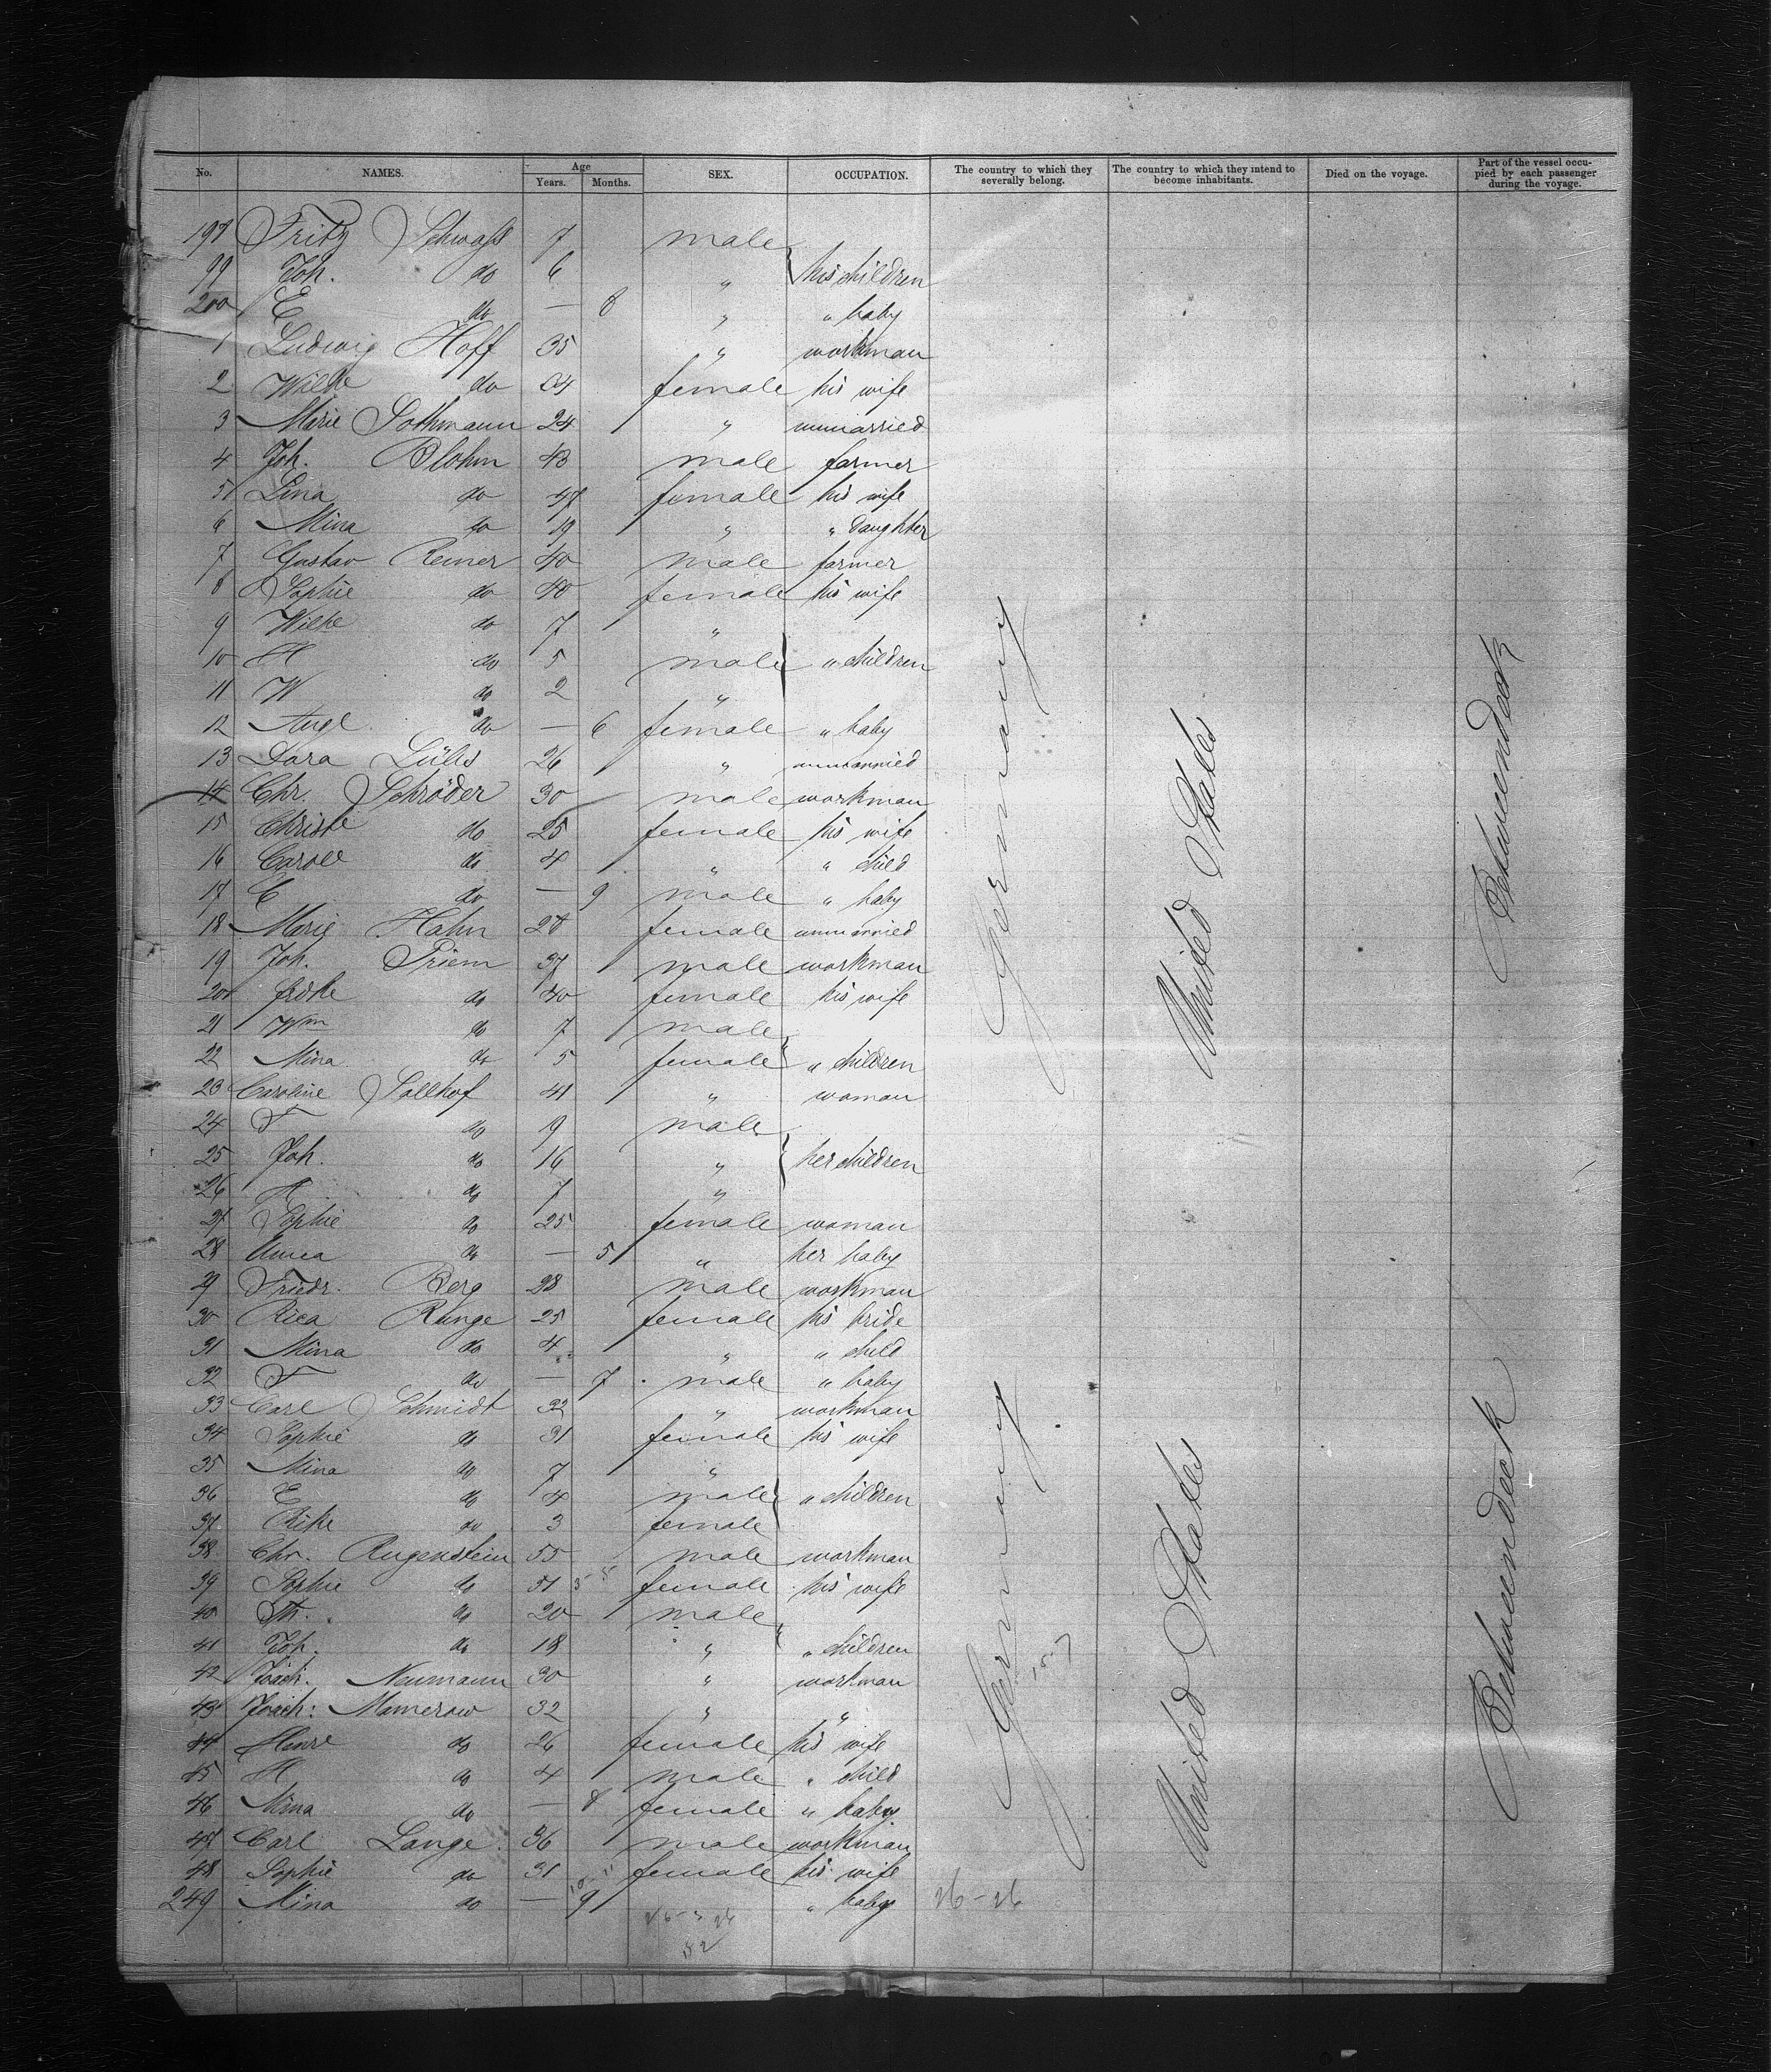 No. NAMES. Age Years. Months. SEX. OCCUPATION. The country to which they severally belong. The country to which they intend to become inhabitants. Died on the voyage. Part of the vessel occupied by each passenger during the voyage.
198 Fritz Schwass 7 male
99 Joh. do 6 " } his children
200 E do — 8 " " baby
1 Ludwig Hoff 35 " workman
2 Wilhe do 34 female his wife
3 Marie Sothmann 24 " unmarried
4 Joh. Blohm 43 male farmer
5 Lina do 47 female his wife
6 Mina do 19 " " daughter
7 Gustav Remer 40 male farmer
8 Sophie do 40 female his wife
9 Wilhe do 7 "
10 H do 5 male } " children
11 W do 2 "
12 Auge do — 6 female " baby
13 Dora Lühs 26 " unmarried
14 Chr. Schröder 30 male workman
15 Christe do 25 female his wife
16 Carole do 4 " " child
17 C do — 9 male " baby
18 Marie Hahn 28 female unmarried
19 Joh. Priem 37 male workman
20 do 40 female his wife
21 Wm do 7 male
22 Mina do 5 female } " children
23 Caroline Sallhof 41 " woman
24 F do 9 male
25 Joh. do 16 " } her children
26 H do 7 "
27 Sophie do 25 female woman
28 Anna do — 5 " her baby
29 Friedr. Berg 28 male workman
30 Rica Runge 25 female his bride
31 Mina do 4 " " child
32 F do — 7 male " baby
33 Carl Schmidt 32 " workman
34 Sophie do 31 female his wife
35 Mina do 7 "
36 E do 4 male } " children
37 Rike do 3 female
38 Chr. Rugenstein 55 male workman
39 Sophie do 51 female his wife
40 Th. do 20 male
41 Joh. do 18 " " children
42 Joach. Neumann 30 " workman
43 Joach: Mamerow 32 " "
44 Henre do 26 female his wife
45 H do 4 male " child
46 Mina do — 8 female " baby
47 Carl Lange 36 male workman
48 Sophie do 31 female his wife
249 Mina do — 9 " baby
26-26
Germany
United States
Betweendeck
Germany
United States
Betweendeck